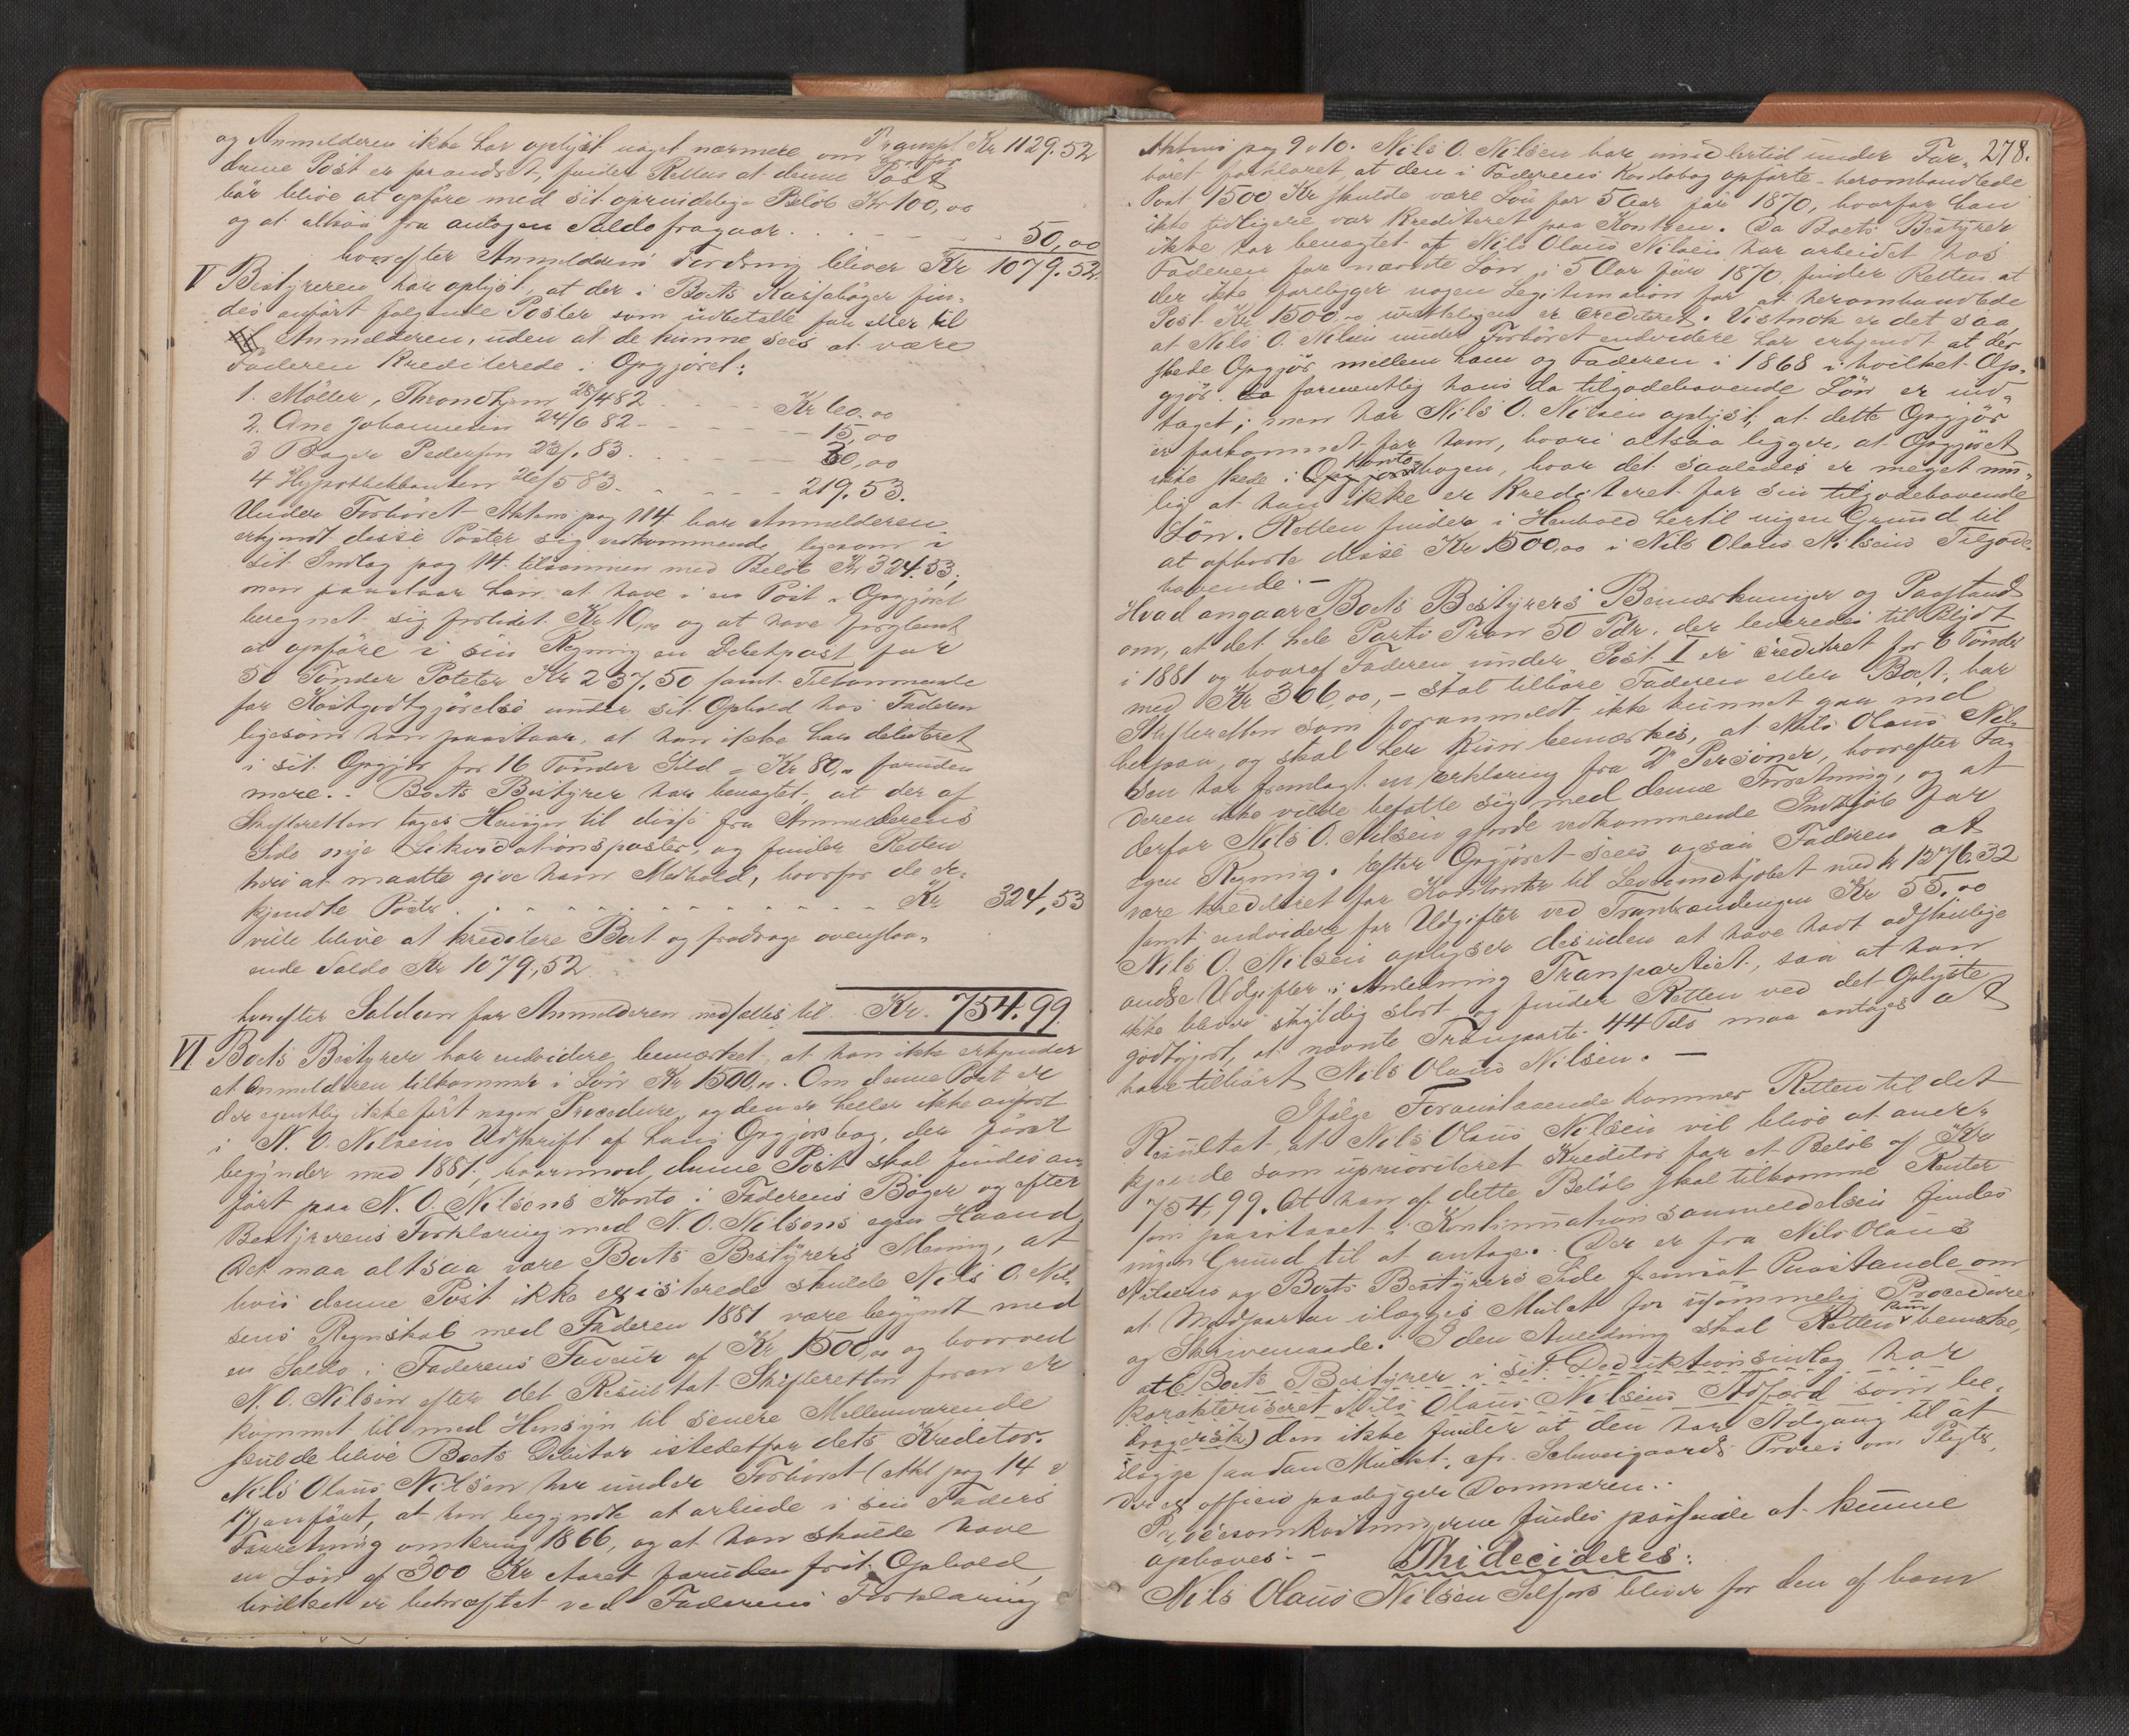 Transpt. Kr 1129.52
og Anmelderen ikke har oplyst noget nærmere om hvorfor
denne Post er forandret, finder Retten at denne Post
bør blive at opføre med sit oprindelige Beløb Kr 100,00
og at altsaa fra antagen Saldo fragaar . . . 50,00
hvorefter Anmelderens Fordring bliver Kr 1079.52.
V Bestyreren har oplyst, at der i Boets Kassebøger fin-
des anført følgende Poster som udbetalte for eller til
Anmelderen, uden at de kunne sees at være
Faderen krediterede i Opgjøret:
1. Möller, Throndhjem 28/4 82 - - - Kr 60.00
2. Ane Johannesen 24/6 82 - - - 15,00
3 Bager Pedersen 23/. 83. - - - 30,00
4 Hypothekbanken 26/5 83. - - - 219.53.
Under Forhøret Aktens pag 114 har Anmelderen
erkjendt disse Poster sig vedkommende ligesom i
sit Indlæg pag 14 tilsammen med Beløb Kr 324.53;
men paastaar han at have i en Post i Opgjøret
beregnet sig forlidet Kr 10,00 og at have forglemt
at opføre i sin Regning en Debetpost for
50 Tønder Poteter Kr 237.50 samt Tilkommende
for Kostgodtgjørelse under sit Ophold hos Faderen
ligesom han paastaar, at han ikke har debiteret
i sit Opgjør for 16 Tønder Sild = Kr 80,00 foruden
mere. . Boets Bestyrer har benægtet, at der af
Skifteretten tages Hensyn til disse fra Anmelderens
Side nye Likvidationsposter, og finder Retten
heri at maatte give ham Medhold, hvorfor de er-
kjendte Poster . . . . Kr 324,53
ville blive at kreditere Boet og fradrage ovenstaa-
ende Saldo Kr 1079,52.
hvorefter Saldoen for Anmelderen nedsættes til Kr. 754.99.
VI Boets Bestyrer har endvidere bemærket, at han ikke erkjender
at Anmelderen tilkommer i Løn Kr 1500,00. Om denne Post er
der egentlig ikke ført nogen Procedure, og den er heller ikke anført
i N. O. Nilsens Udskrift af hans Opgjørsbog, der først
begynder med 1881; hvorimod denne Post skal findes an-
ført paa N. O. Nilsens Konto i Faderens Bøger og efter
Bestyrerens Forklaring med N. O. Nilsens egen Haand,
Det maa altsaa være Boets Bestyrers Mening, at
hvis denne Post ikke existerede skulde Nils O. Nil-
sens Regnskab med Faderen 1881 være begyndt med
en Saldo i Faderens Faveur af Kr 1500,00 og hvorved
N. O. Nilsen efter det Resultat Skifteretten foran er
kommet til med Hensyn til senere Mellemværende
skulde blive Boets Debitor istedetfor dets Kreditor.
Nils Olaus Nilsen har under Forhøret (Akt pag 14 &
17) anført, at han begyndte at arbeide i sin Faders
Forretning omkring 1866, og at han skulde have
en Løn af 300 Kr Aaret foruden frit Ophold,
hvilket er bekræftet ved Faderens Forklaring
278.
Aktens pag 9 & 10. Nils O. Nilsen har imidlertid under For-
høret forklaret, at den i Faderens Kontobog opførte heromhandlede
Post 1500 Kr skulde være Løn for 5 Aar før 1870, hvorfor han
ikke tidligere var krediteret paa Kontoen. Da Boets Bestyrer
ikke har benægtet at Nils Olaus Nilsen har arbeidet hos
Faderen for nævnte Løn i 5 Aar før 1870 finder Retten at
der ikke foreligger nogen Legitimation for at heromhandlede
Post Kr 1500,00 urettelig er crediteret. Vistnok er det saa,
at Nils O. Nilsen under Forhøret endvidere har erkjendt at der
skede Opgjør mellem ham og Faderen i 1868 i hvilket Op-
gjør formentlig hans da tilgodehavende Løn er ind-
taget; men har Nils O. Nilsen oplyst, at dette Opgjør
er forkommet for ham, hvori altsaa ligger, at Opgjøret
ikke skede i Kontobogen, hvor det saaledes er meget mu-
lig at han ikke er krediteret for sin tilgodehavende
Løn. Retten finder i Henhold hertil ingen Grund til
at afkorte disse Kr 1500,00 i Nils Olaus Nilsens Tilgode-
havende. -
Hvad angaar Boets Bestyrers Bemærkninger og Paastand
om, at det hele Parti Tran 50 Tdr. der leveredes til Blydt
i 1881 og hvoraf Faderen under Post I er crediteret for 6 Tønder
med Kr 306,00, - skal tilhøre Faderen eller Boet, har
Skifteretten som foranmeldt ikke kunnet gaa ind
herpaa, og skal her kun bemærkes, at Nils Olaus Nil-
sen har fremlagt en Erklæring fra 2 Personer, hvorefter Fa-
deren ikke vilde befatte sig med denne Forretning, og at
derfor Nils O. Nilsen gjorde vedkommende Indkjøb for
egen Regning. Efter Opgjøret sees ogsaa Faderen at
være krediteret for Kontanter til Leverindkjøbet med Kr 1276.32
samt endvidere for Udgifter ved Tranbrændingen Kr 55,00
Nils O. Nilsen oplyser desuden at have havt adskillige
andre Udgifter i Anledning Tranpartiet, saa at han
ikke blev skyldig stort og finder Retten ved det Oplyste
godtgjort, at nævnte Tranparti 44 Tdr maa antages at
have tilhørt Nils Olaus Nilsen. -
Ifølge Foranstaaende kommer Retten til det
Resultat, at Nils Olaus Nilsen vil blive at aner-
kjende som uprioriteret Kreditor for et Beløb af Kr
754,99. At han af dette Beløb skal tilkomme Renter
som paastaaet i Kontinuationsanmeldelsen findes
ingen Grund til at antage. Der er fra Nils Olaus
Nilsens og Boets Bestyrers Side fremsat Paastande om
at Modparten ilægges Mulkt for usømmelig Procedure
og Skrivemaade. I den Anledning skal Retten kun bemærke,
at (Boets Bestyrer i sit Deduktionsindlæg har
karakteriseret Nils Olaus Nilsens Adfærd som be-
dragersk) den ikke finder at den har Adgang til at
ilægge saadan Mulkt, cfr. Schweigaards Proces om Pligter,
der ex officio paaligger Dommeren.
Procesomkostningerne findes passende at kunne
ophæves. -
Thi decideres:
Nils Olaus Nilsen Selfors bliver for den af ham